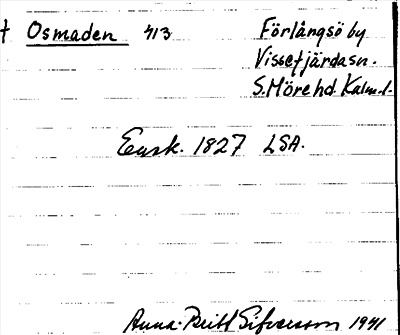 † Osmaden 413 Förlångsö by
Vissefjärdasn.
S. Möre hd. Kalm. l.
Ensk. 1827 LSA.
Anna-Britt Sifversson 1941